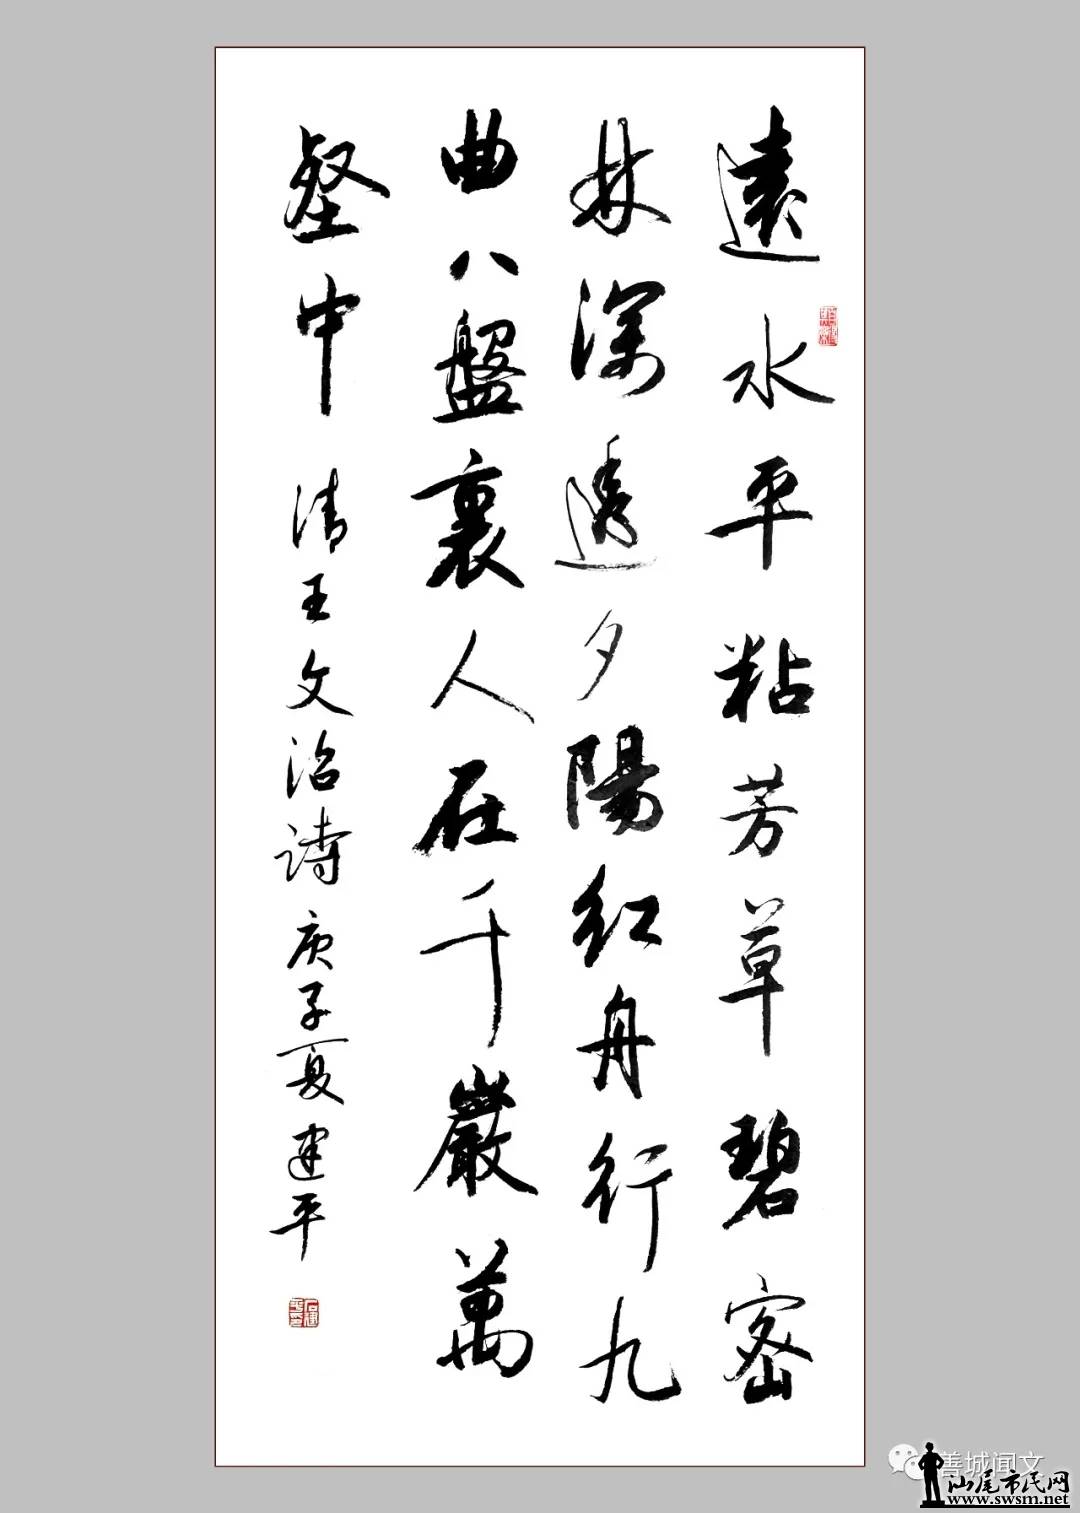 遠水平粘芳草碧密
林深透夕陽紅舟行九
曲八盤裏人在千巖萬
壑中 清王文治詩庚子夏建平
善城闻文
汕尾市民网
www.swsm.net